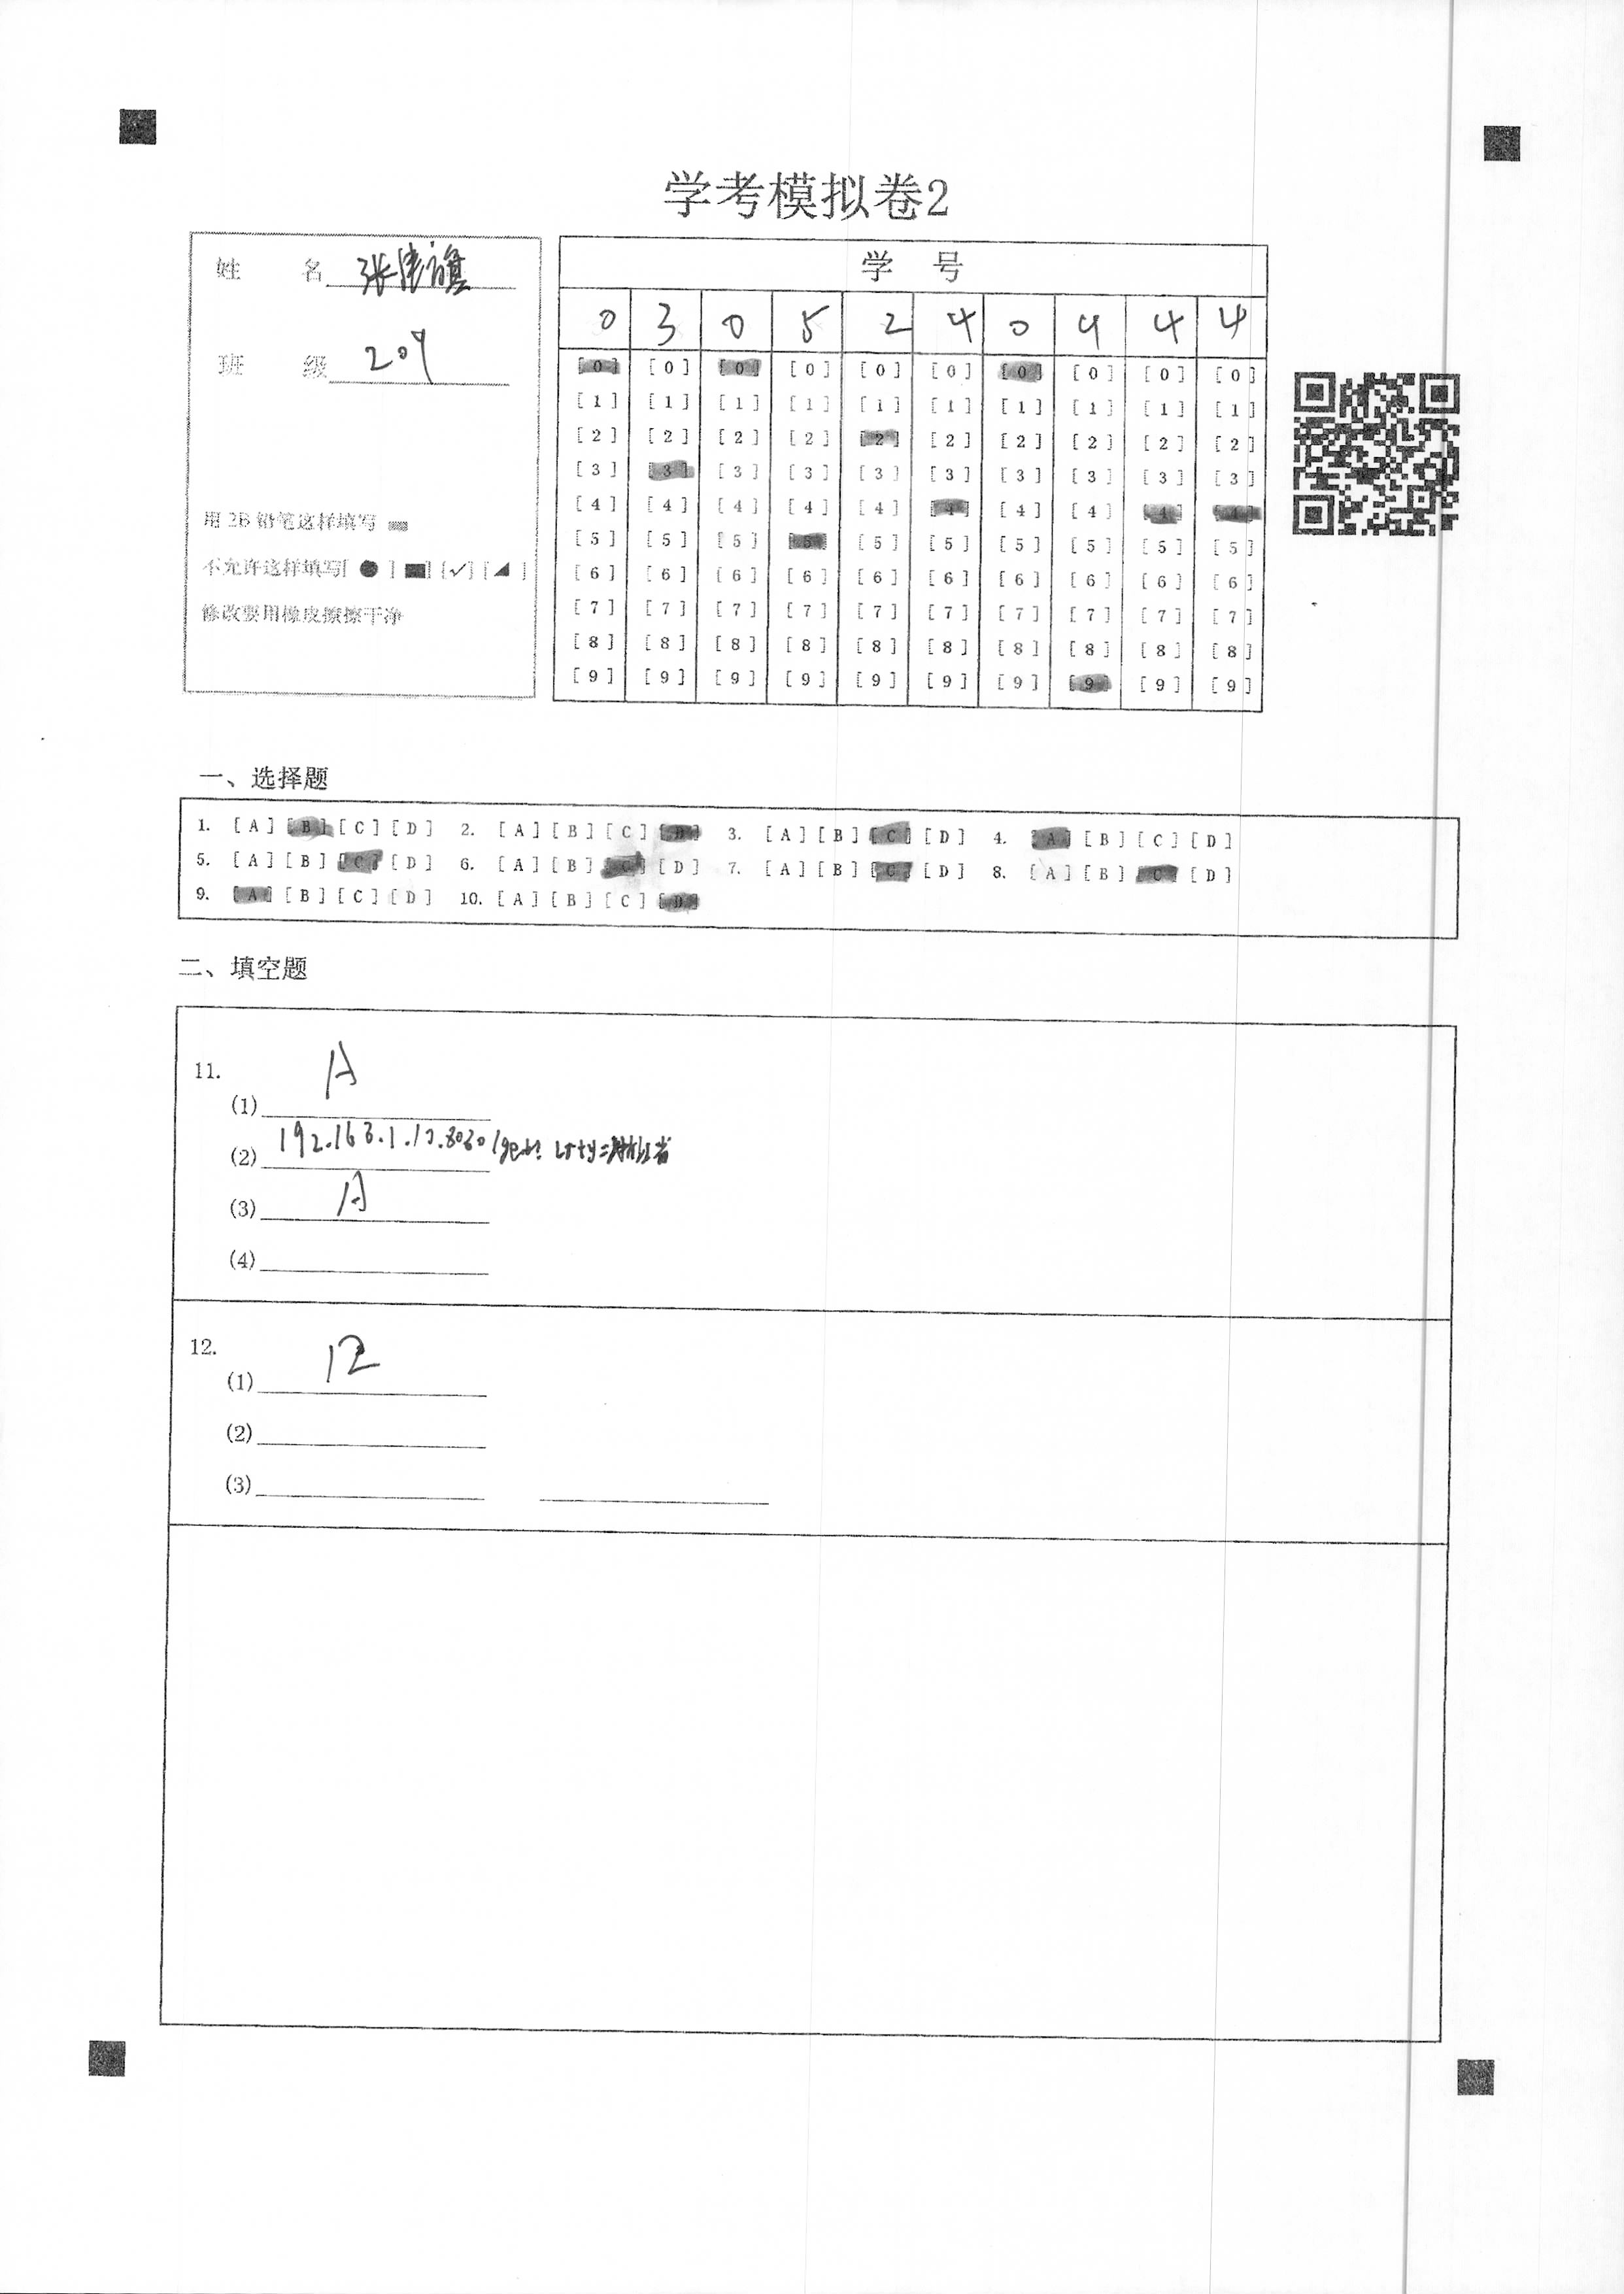 学考模拟卷2
姓 名 张
班 级 209
用 2B 铅笔这样填写
不允许这样填写[ ● ] [■] [✓] [◢ ]
修改要用橡皮擦擦干净
学 号
0 3 0 5 2 4 0 9 4 4
[0] [0] [0] [0] [0] [0] [0] [0] [0] [0]
[1] [1] [1] [1] [1] [1] [1] [1] [1] [1]
[2] [2] [2] [2] [2] [2] [2] [2] [2] [2]
[3] [3] [3] [3] [3] [3] [3] [3] [3] [3]
[4] [4] [4] [4] [4] [4] [4] [4] [4] [4]
[5] [5] [5] [5] [5] [5] [5] [5] [5] [5]
[6] [6] [6] [6] [6] [6] [6] [6] [6] [6]
[7] [7] [7] [7] [7] [7] [7] [7] [7] [7]
[8] [8] [8] [8] [8] [8] [8] [8] [8] [8]
[9] [9] [9] [9] [9] [9] [9] [9] [9] [9]
一、选择题
1. [A] [B] [C] [D] 2. [A] [B] [C] [D] 3. [A] [B] [C] [D] 4. [A] [B] [C] [D]
5. [A] [B] [C] [D] 6. [A] [B] [C] [D] 7. [A] [B] [C] [D] 8. [A] [B] [C] [D]
9. [A] [B] [C] [D] 10. [A] [B] [C] [D]
二、填空题
11.
(1) A
(2) 192.168.1.10.8080
(3) A
(4)
12.
(1) 12
(2)
(3)